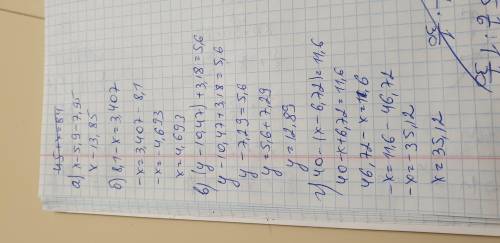 45+x=84
а) x-5,9=7,95
x=13,85
б) 8,1-x=3,407
-x=3,407 8,1
-x=-4,693
x=4,693
в) (y-10,47)+3,18=5,6
y-10,47+3,18=5,6
y-7,29=5,6
y=5,6+7,29
y=12,89
г) 40-(x-6,72)=11,6
40-x+6,72=11,6
46,72-x=11,6
-x=11,6-46,72
-x=-35,12
x=35,12